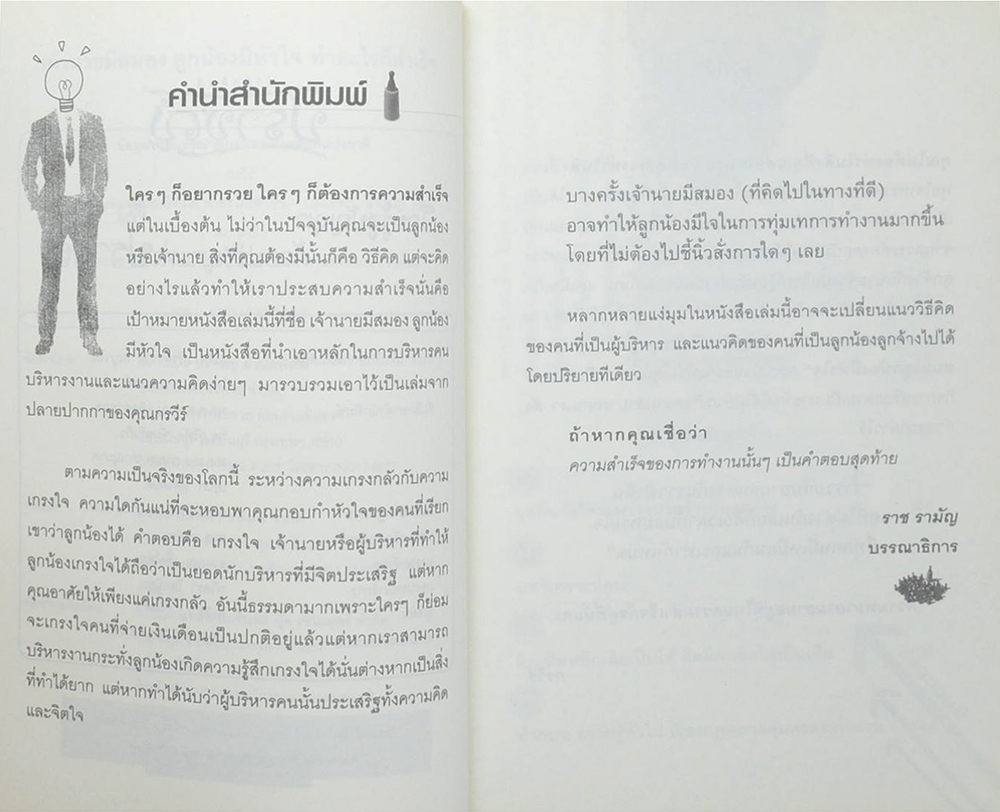 คำนำสำนักพิมพ์
ใครๆ ก็อยากรวย ใครๆ ก็ต้องการความสำเร็จ
แต่ในเบื้องต้น ไม่ว่าในปัจจุบันคุณจะเป็นลูกน้อง
หรือเจ้านาย สิ่งที่คุณต้องมีนั้นก็คือ วิธีคิด แต่จะคิด
อย่างไรแล้วทำให้เราประสบความสำเร็จนั่นคือ
เป้าหมายหนังสือเล่มนี้ที่ชื่อ เจ้านายมีสมอง ลูกน้อง
มีหัวใจ เป็นหนังสือที่นำเอาหลักในการบริหารคน
บริหารงานและแนวความคิดง่ายๆ มารวบรวมเอาไว้เป็นเล่มจาก
ปลายปากกาของคุณกรวีร์
ตามความเป็นจริงของโลกนี้ ระหว่างความเกรงกลัวกับความ
เกรงใจ ความใดกันแน่ที่จะหอบพาคุณกอบกำหัวใจของคนที่เรียก
เขาว่าลูกน้องได้ คำตอบคือ เกรงใจ เจ้านายหรือผู้บริหารที่ทำให้
ลูกน้องเกรงใจได้ถือว่าเป็นยอดนักบริหารที่มีจิตประเสริฐ แต่หาก
คุณอาศัยให้เพียงแค่เกรงกลัว อันนี้ธรรมดามากเพราะใครๆ ก็ย่อม
จะเกรงใจคนที่จ่ายเงินเดือนเป็นปกติอยู่แล้วแต่หากเราสามารถ
บริหารงานกระทั่งลูกน้องเกิดความรู้สึกเกรงใจได้นั่นต่างหากเป็นสิ่ง
ที่ทำได้ยาก แต่หากทำได้นับว่าผู้บริหารคนนั้นประเสริฐทั้งความคิด
และจิตใจ
บางครั้งเจ้านายมีสมอง (ที่คิดไปในทางที่ดี)
อาจทำให้ลูกน้องมีใจในการทุ่มเทการทำงานมากขึ้น
โดยที่ไม่ต้องไปชี้นิ้วสั่งการใดๆ เลย
หลากหลายแง่มุมในหนังสือเล่มนี้อาจจะเปลี่ยนแนววิธีคิด
ของคนที่เป็นผู้บริหาร และแนวคิดของคนที่เป็นลูกน้องลูกจ้างไปได้
โดยปริยายทีเดียว
ถ้าหากคุณเชื่อว่า
ความสำเร็จของการทำงานนั้นๆ เป็นคำตอบสุดท้าย
ราช รามัญ
บรรณาธิการ